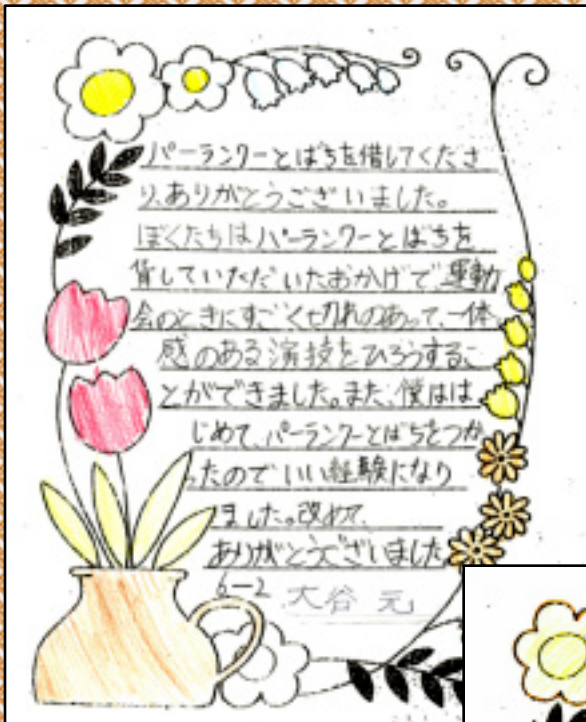 パーランクーとばちを借してくださ
り、ありがとうございました。
ぼくたちはパーランクーとばちを
背していただいたおかげで、運動
会のときにすごく切れのあって、一体
感のある演技をひろうするこ
とができました。また、僕はは
じめて、パーランクーとばちをつか
ったのでいい経験になり
ました。改めて、
ありがとうございました
6-2 大谷 元